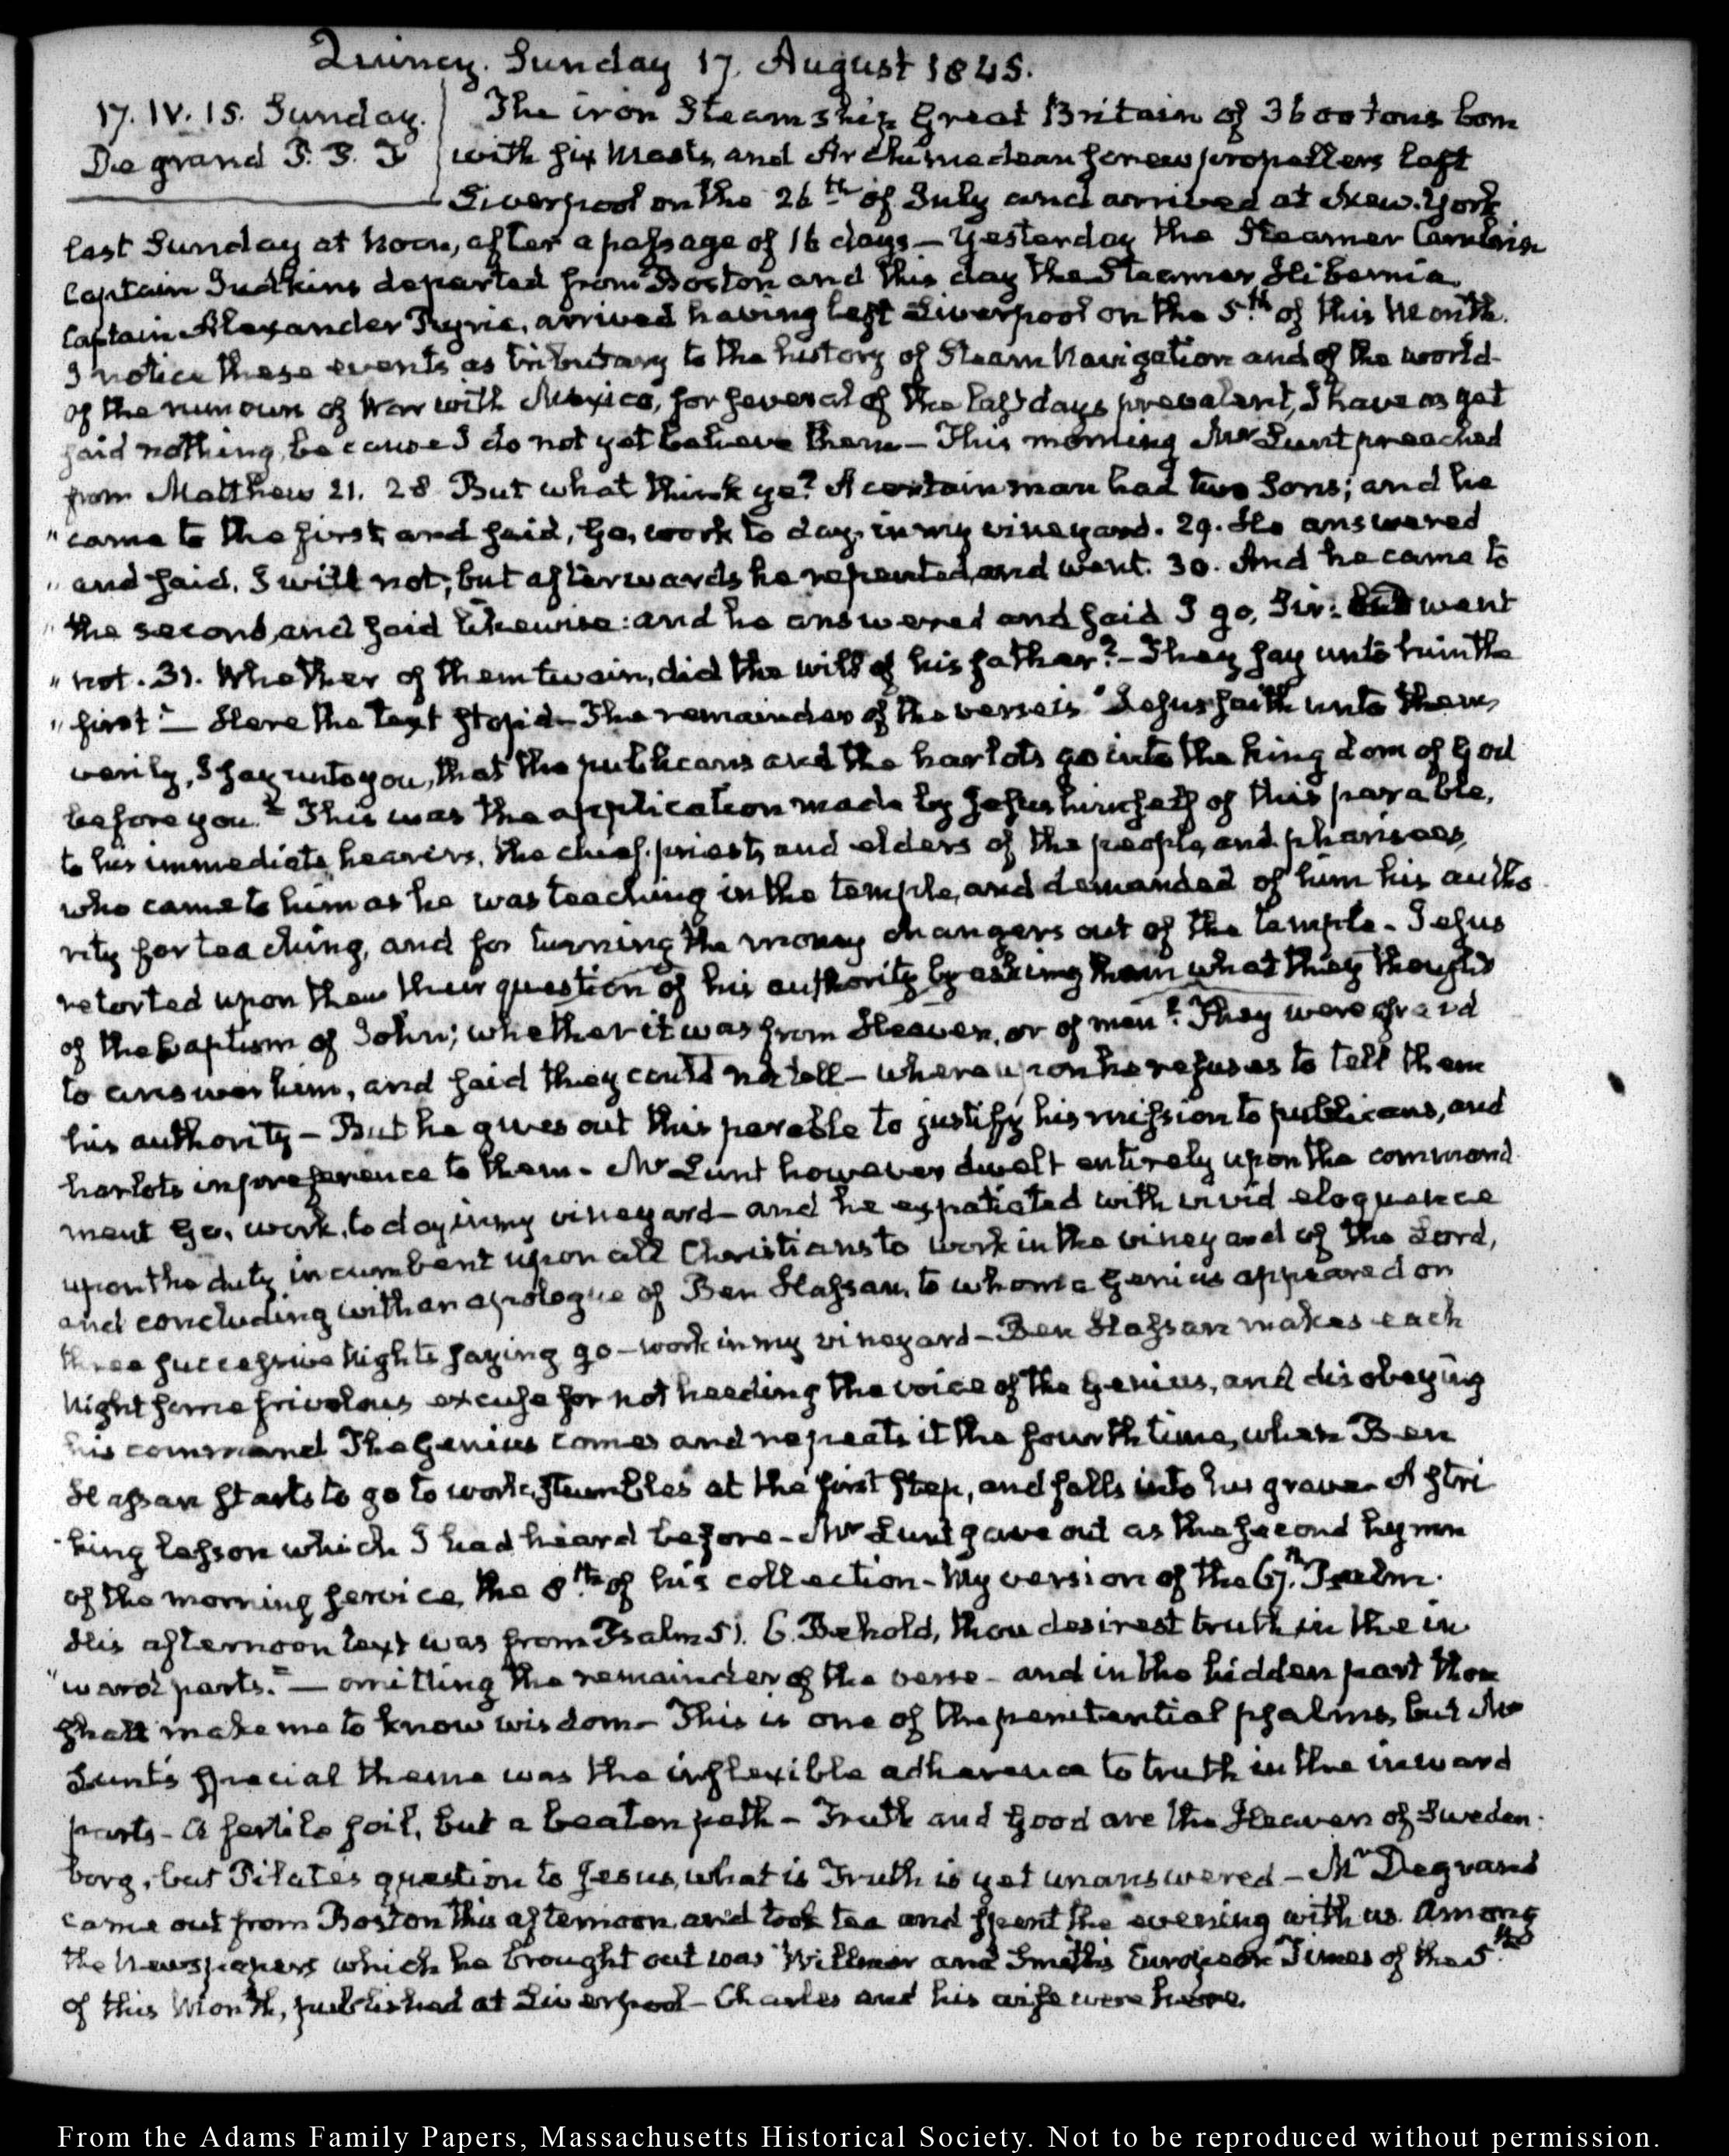 Quincy. Sunday 17. August 1845.
17. IV. 15. Sunday.
Degrand P. P. F
The iron Steamship Great Britain of 3600 tons
with six Masts, and Archimedean screw propellers left
Liverpool on the 26th of July and arrived at New-York
last Sunday at Noon, after a passage of 16 days — Yesterday the Steamer Cambria
Captain Judkins departed from Boston and this day the Steamer Hibernia
Captain Alexander Ryrie, arrived having left Liverpool on the 5th of this Month.
I notice these events as tributary to the history of Steam Navigation and of the world-
of the rumours of War with Mexico, for several of the last days prevalent, I have as yet
said nothing, because I do not yet believe them — This morning Mr Lunt preached
from Matthew 21. 28 But what think ye? A certain man had two Sons; and he
"came to the first, and said, Go, work to day, in my vineyard. 29. He answered
"and said, I will not; but afterwards he repented, and went. 30. And he came to
"the second, and said likewise: and he answered and said I go, Sir: and went
"not. 31. Whether of them twain, did the will of his father? – They say unto him the
"first" — Here the text stop'd – The remainder of the verse is "Jesus saith unto them,
verily, I say unto you, that the publicans and the harlots go into the kingdom of God
before you." This was the application made by Jesus himself of this parable,
to his immediate hearers, the chief priests, and elders of the people, and pharisees,
who came to him as he was teaching in the temple, and demanded of him his autho
rity for teaching, and for turning the money changers out of the temple – Jesus
retorted upon them their question of his authority by asking them what they thought
of the baptism of John; whether it was from Heaven, or of men? They were afraid
to answer him, and said they could not tell – whereupon he refuses to tell them
his authority – But he gives out this parable to justify his mission to publicans, and
harlots in preference to them – Mr Lunt however dwelt entirely upon the command
ment Go, work, to day in my vineyard – and he expatiated with vivid eloquence
upon the duty incumbent upon all Christians to work in the vineyard of the Lord,
and concluding with an apologue of Ben Hassan, to whom a Genius appeared on
three successive Nights saying go – work in my vineyard – Ben Hassan makes each
Night some frivolous excuse for not heeding the voice of the Genius, and disobeying
his command The Genius comes and repeats it the fourth time, when Ben
Hassan starts to go to work, stumbles at the first step, and falls into his grave – A stri
-king lesson which I had heard before – Mr Lunt gave out as the second hymn
of the morning service, the 8th of his collection – My version of the 67th Psalm.
His afternoon text was from Psalm 51. 6. Behold, thou desirest truth in the in
"ward parts." — omitting the remainder of the verse – and in the hidden part thou
shalt make me to know wisdom – This is one of the penitential psalms, but Mr
Lunt's special theme was the inflexible adherence to truth in the inward
parts – a fertile soil, but a beaten path – Truth and Good are the Heaven of Sweden-
borg, but Pilate's question to Jesus, what is Truth is yet unanswered – Mr Degrand
came out from Boston this afternoon, and took tea and spent the evening with us. Among
the Newspapers which he brought out was Willmer and Smith's European Times of the 5th
of this Month, published at Liverpool – Charles and his wife were here.
From the Adams Family Papers, Massachusetts Historical Society. Not to be reproduced without permission.